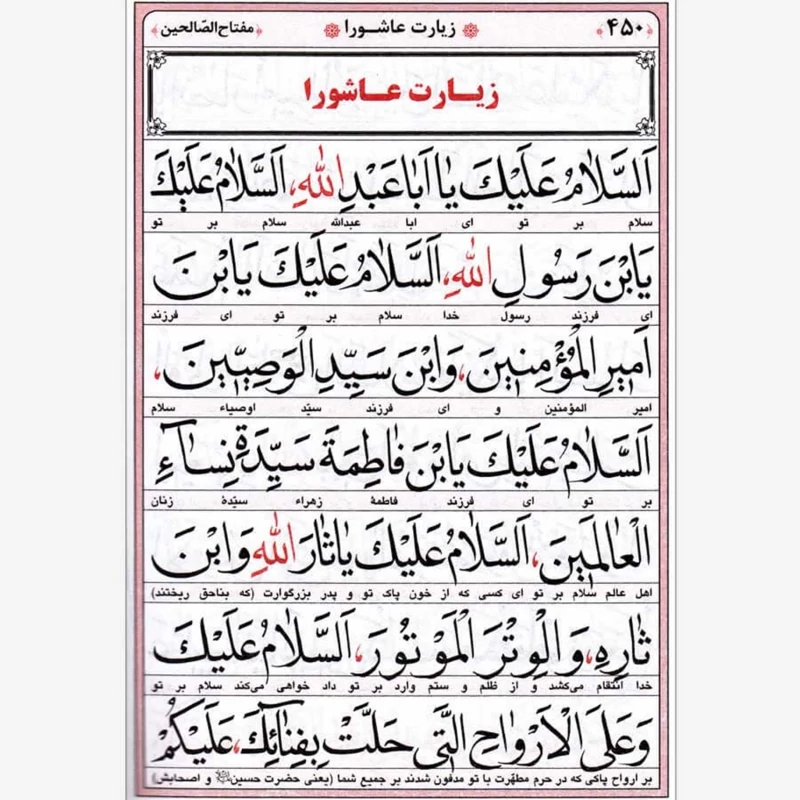 ﴿۴۵۰﴾ زیارت عاشـورا ﴿مفتاح‌الصّالحین﴾
زیـارت عـاشورا
اَلسَّلامُ عَلَيْكَ يا اَبا عَبْدِ اللهِ، اَلسَّلامُ عَلَيْكَ
سلام بر تو ای ابا عبدالله سلام بر تو
يَابْنَ رَسُولِ اللهِ، اَلسَّلامُ عَلَيْكَ يَابْنَ
ای فرزند رسول خدا سلام بر تو ای فرزند
اَميرِ الْمُؤْمِنينَ، وَابْنَ سَيِّدِ الْوَصِيّينَ،
امیر المؤمنین و ای فرزند سیّد اوصیاء سلام
اَلسَّلامُ عَلَيْكَ يَابْنَ فاطِمَةَ سَيِّدَةِ نِساۤءِ
بر تو ای فرزند فاطمهٔ زهراء سیّدهٔ زنان
الْعالَمينَ، اَلسَّلامُ عَلَيْكَ يا ثارَ اللهِ وَابْنَ
اهل عالم سلام بر تو ای کسی که از خون پاک تو و پدر بزرگوارت (که بناحق ریختند)
ثارِهِ، وَالْوِتْرَ الْمَوْتُورَ، اَلسَّلامُ عَلَيْكَ
خدا انتقام می‌کشد و از ظلم و ستم وارد بر تو داد خواهی می‌کند سلام بر تو
وَعَلَى الْاَرْواحِ الَّتي حَلَّتْ بِفِناۤئِكَ، عَلَيْكُمْ
بر ارواح پاکی که در حرم مطهّرت با تو مدفون شدند بر جمیع شما (یعنی حضرت حسین و اصحابش)